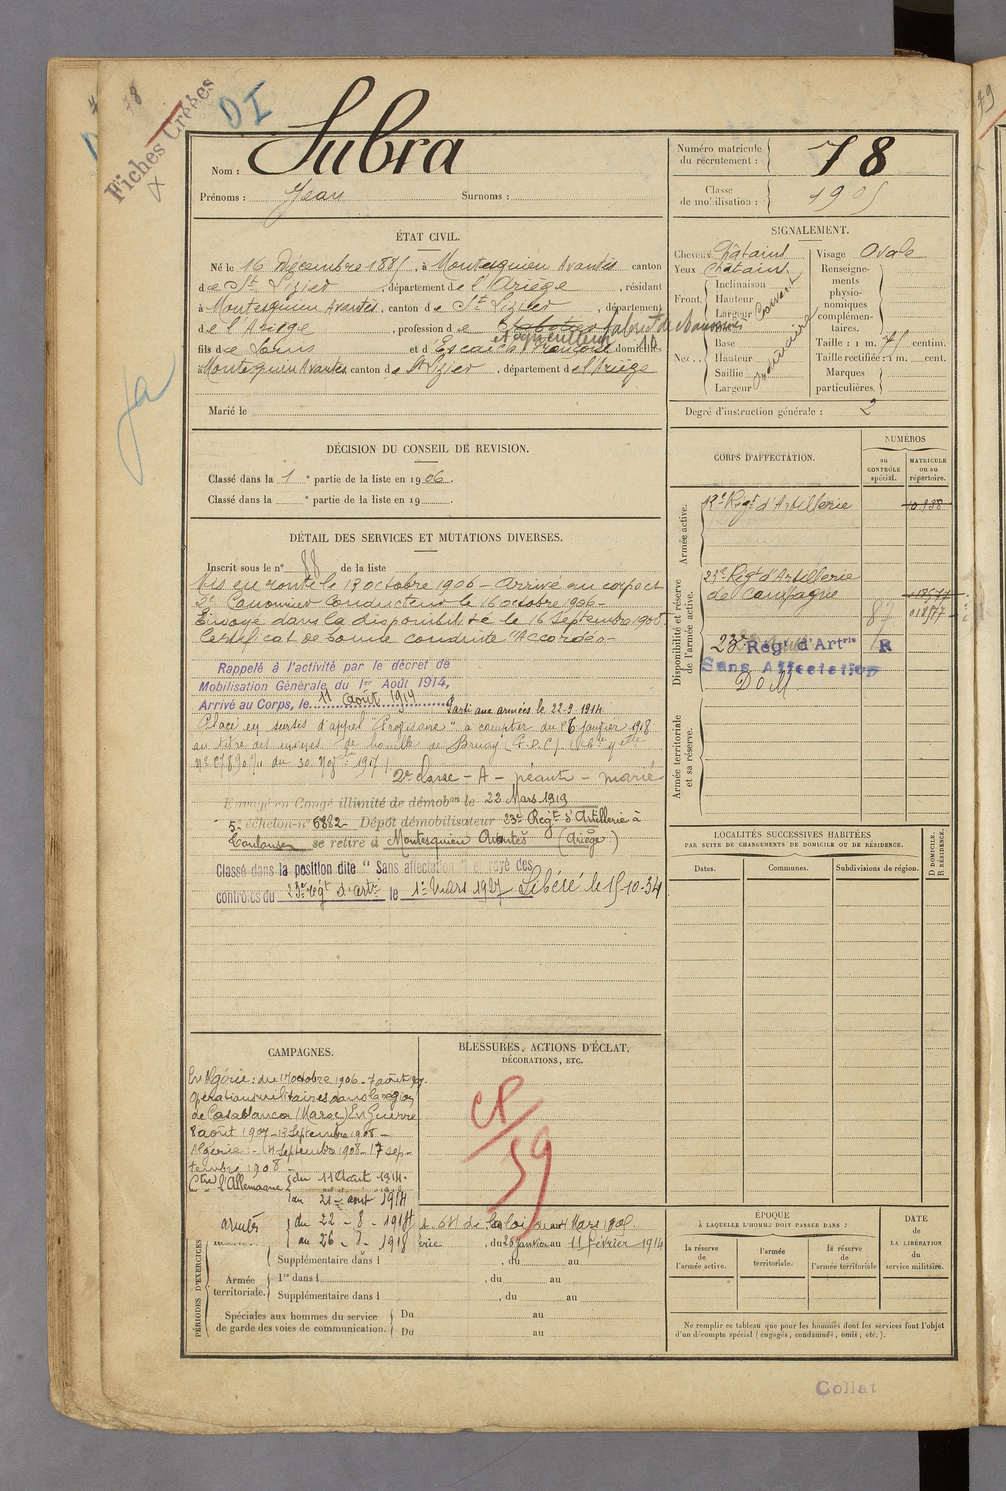 78
Fiches Créées
DI
Nom : Subra
Prénoms : Jean Surnoms :
Numéro matricule du recrutement : 78
Classe de mobilisation : 1905
ÉTAT CIVIL.
Né le 16 Décembre 1885, à Montesquieu Avantès canton
de St Lizier, département de l'Ariège, résidant
à Montesquieu Avantès, canton de St Lizier, département
de l'Ariège, profession de fabrt de
fils de Louis et de Escaich Françoise domiciliés
à Montesquieu Avantès canton de St Lizier, département de l'Ariège
Marié le
SIGNALEMENT.
Cheveux Châtains
Yeux Châtains
Front. Inclinaison
Hauteur
Largeur
Nez Base
Hauteur
Saillie
Largeur
Visage Ovale
Renseignements physionomiques complémentaires.
Taille : 1 m. 75 centim.
Taille rectifiée : 1 m. cent.
Marques particulières.
Degré d'instruction générale : 2
ja
DÉCISION DU CONSEIL DE REVISION.
Classé dans la 1e partie de la liste en 1906.
Classé dans la e partie de la liste en 19
CORPS D'AFFECTATION.
NUMÉROS
au CONTRÔLE spécial.
MATRICULE ou au répertoire.
Armée active.
12e Regt d'Artillerie
Disponibilité et réserve de l'armée active.
23e Regt d'Artillerie
de Campagne
23e Régt d'Artrie R
Sans Affectation
DoM
Armée territoriale et sa réserve.
DÉTAIL DES SERVICES ET MUTATIONS DIVERSES.
Inscrit sous le n° 88 de la liste
Mis en route le 13 octobre 1906 - Arrivé au corps et
2e Canonnier Conducteur le 16 octobre 1906 -
Envoyé dans la disponibilité le 16 Septembre 1908
Certificat de bonne conduite "Accordé" -
Rappelé à l'activité par le décret de
Mobilisation Générale du 1er Août 1914,
Arrivé au Corps, le 11 août 1914 Parti aux armées le 22-9-1914
Placé en sursis d'appel "Provisoire" à compter du 26 janvier 1918
au titre des mines de houille de Bruay (P.D.C.)
2e classe - A - néant - marié
Envoyé en Congé illimité de démobon le 22 Mars 1919
5e échelon n° 6882 Dépôt démobilisateur 23e Regt d'Artillerie à
Toulouse se retire à Montesquieu Avantès (Ariège)
Classé dans la position dite "Sans affectation" et rayé des
contrôles du 23e régt d'artie le 1er Mars 1927 Libéré le 15-10-34
LOCALITÉS SUCCESSIVES HABITÉES
PAR SUITE DE CHANGEMENTS DE DOMICILE OU DE RÉSIDENCE.
Dates.
Communes.
Subdivisions de région.
D DOMICILE. R RÉSIDENCE.
CAMPAGNES.
En Algérie : du 17 octobre 1906 - 7 août 1907.
Opérations militaires dans la région
de Casablanca (Maroc) En Guerre
8 août 1907 - 13 Septembre 1908 -
Algérie : - 14 Septembre 1908 - 17 sep-
tembre 1908
Ctre l'Allemagne du 11 Août 1914.
au 21 août 1914
armées du 22 - 8 - 1914
au 26 - 1 - 1918
BLESSURES, ACTIONS D'ÉCLAT,
DÉCORATIONS, ETC.
CP
59
de la loi du 21 Mars 1905.
, du 26 janvier au 11 février 1914
PÉRIODES D'EXERCICES
Armée territoriale.
Supplémentaire dans l , du au
1re dans l , du au
Supplémentaire dans l , du au
Spéciales aux hommes du service de garde des voies de communication.
Du au
Du au
ÉPOQUE
À LAQUELLE L'HOMME DOIT PASSER DANS :
la réserve de l'armée active.
l'armée territoriale.
la réserve de l'armée territoriale
DATE de LA LIBÉRATION du service militaire.
Ne remplir ce tableau que pour les hommes dont les services font l'objet
d'un décompte spécial (engagés, condamnés, omis, etc.).
Collat
79